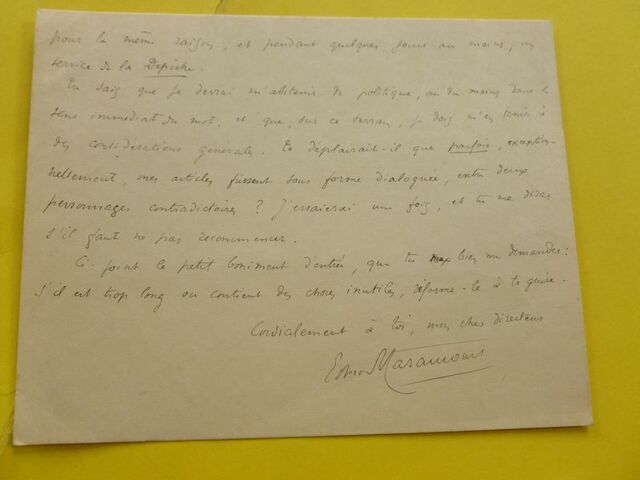 pour la même raison, et pendant quelques jours au moins, un
service de la Dépêche.
Tu sais que je devrai m'abstenir de politique, ou du moins dans le
sens immédiat du mot, et que, sur ce terrain, je dois m'en tenir à
des considérations générales. Te déplairait-il que parfois, exception-
nellement, mes articles fussent sous forme dialoguée, entre deux
personnages contradictoires ? J'essaierai une fois, et tu me diras
s'il faut ne pas recommencer.
Ci-joint le petit boniment d'entrée, que tu veux bien me demander :
s'il est trop long ou contient des choses inutiles, réforme-le à ta guise.
Cordialement à toi, mon cher directeur
Haraucourt